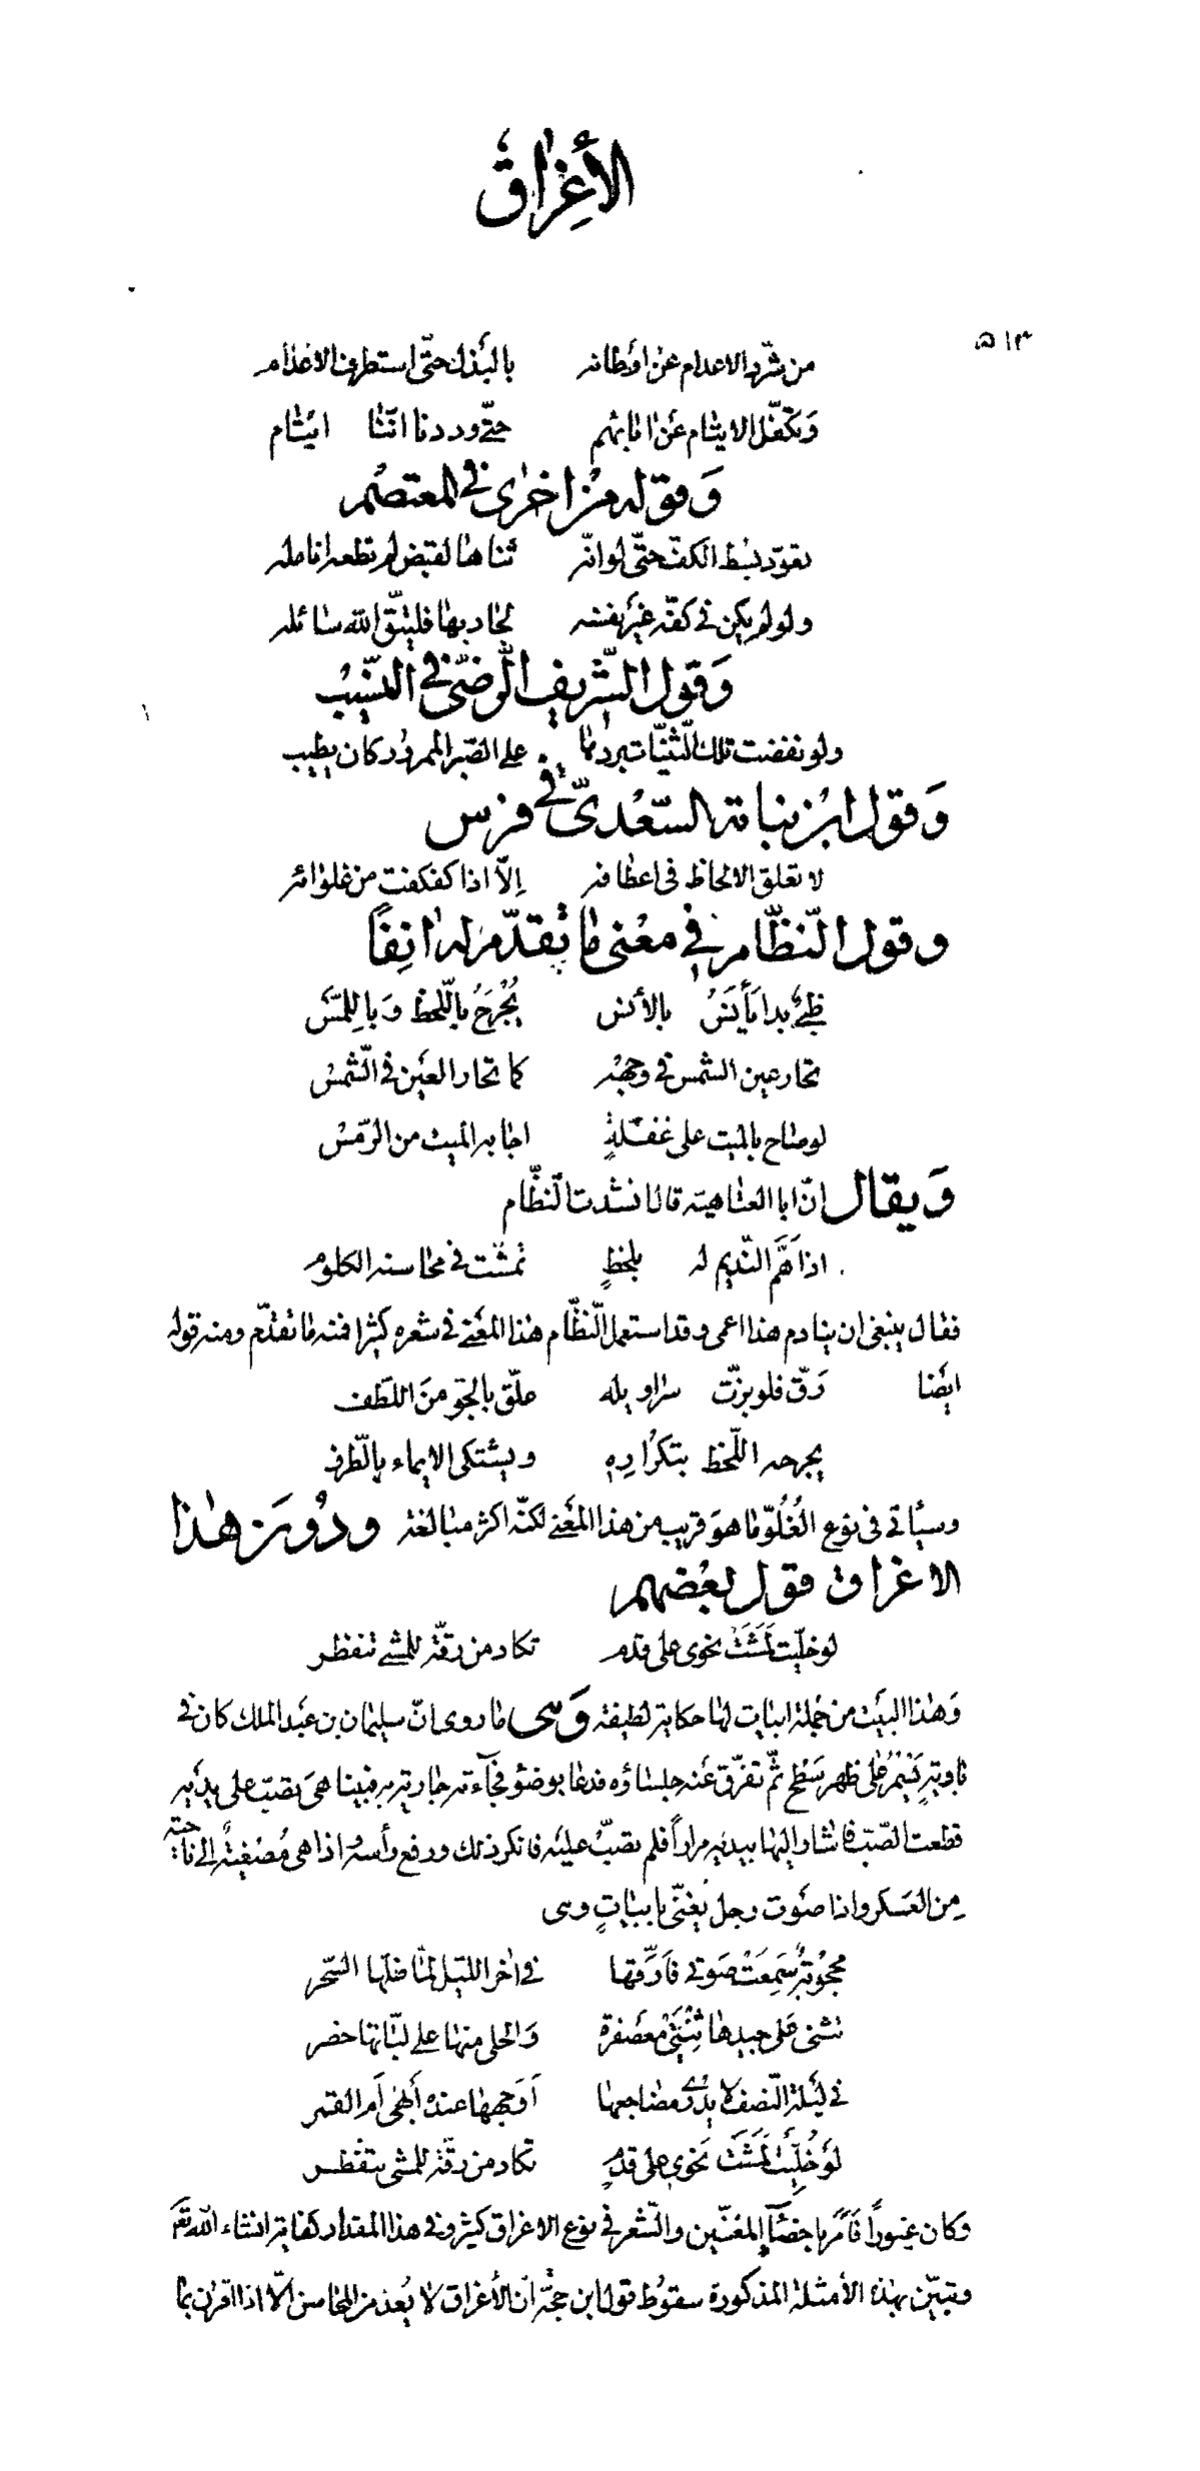 الأغراق
٥١٣
من شرّد الاعدام عن اوطانه بالبذل حتّى استطرف الاعدام
وتكفّل الايتام عن ابائهم حتّى وددنا انّنا ايتام
وقوله من اخرى في المعتصم
تعوّد بسط الكفّ حتّى لو انّه ثناها لقبض لم تطعه انامله
ولو لم يكن في كفّه غير نفسه لجاد بها فليتّق الله سائله
وقول الشّريف الرّضىّ في النّسيب
ولو نفضت تلك الثّنيّات بردها على الصّبر الممرور كان يطيب
وقول ابن نباتة السّعدىّ في فرس
لا تعلق الالحاظ فى اعطافه الّا اذا كفكفت من غلوائه
وقول النّظّام في معنى ما تقدّم له انفًا
ظبىٌ بدا مأيَسُ بالأنس يُجْرَحُ باللّحظ وَباللّمسَ
تحار عين الشمس في وجهه كما تحار العين في الشّمس
لو صاح بالميت على غفلةٍ اجابه الميت من الرّمس
وَيقال انّ ابا العتاهية قال انشدت النّظّام
اذا هَمَّ النّديم له بلحظٍ تمشّت في محاسنه الكلوم
فقال ينبغى ان ينادم هذا اعمى وقد استعمل النّظّام هذا المعنى في شعره كثيرا فمنه ما تقدّم ومنه قوله
ايضا رَقّ فلو بزّت سراويله علّق بالجوّ من اللّطف
يجرحه اللّحظ بتكرارِهِ ويشتكى الايماء بالطّرف
وسيأتى فى نوع الغُلُوّ ما هو قريب من هذا المعنى لكنّه اكثر مبالغة ودُون هذا
الاغراق قول بعضهم
لو خلّيت لمشَت نحوى على قدم تكاد من رقّة للمشى تنفطر
وَهذا البيت من جُملة ابيات لها حكاية لطيفة وَهى ما روى انّ سليمان بن عبد الملك كان في
باديةٍ يَسْمُرُ على ظهر سَطْح ثمّ تفرّق عنه جلساؤه فدعا بوضوء فجآءته جارية به فبينا هى تصبّ على يديه
قطعت الصّبّ فاشار اليها بيديه مراراً فلم تصبّ عليه فانكر ذلك ورفع رأسه واذا هى مُصْغيةٌ الى ناحية
مِن العسكر واذا صوت رجل يغنّى بابياتٍ وهى
محجوبةٌ سَمِعَتْ صَوتى فارّقها في اٰخر اللّيل لمّا ظلّها السّحر
تثنى على جيدها ثِنْيَىْ معصفرة وَالحلى منها على لبّاتها حضر
في ليلة النّصف لا يدرى مضاجعها اَوَجهها عنده أبهى اَم القمر
لَو خُلّيَتْ لَمَشَتْ نَحوى على قدمٍ تكاد من رقّة للمشى تنفطر
وكان غيوراً فَأمَر باخصآء المغنّين والشّعر في نوع الاغراق كثير وفى هذا المقدار كفاية انشاء الله تعَ
وتبيّن بهذه الأمثلة المذكورة سقوط قول ابن حجّة انّ الأغراق لا يُعد من المحاسن الّا اذا اقترن بما